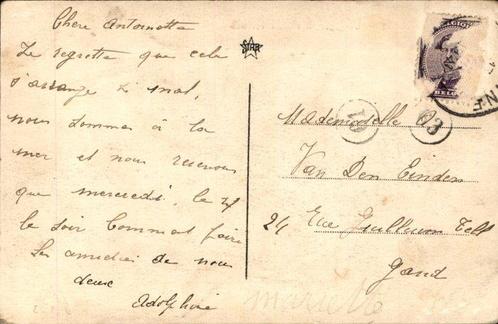 Chère Antoinette
Je regrette que cela
s'arrange si mal,
nous sommes à la
mer et nous revenons
que mercredi, le
le soir Comment faire
Les amitiés de nous
deux
Adolphine
STAR
BELGIQUE
BELG
Mademoiselle
Van Den Einden
24 Rue Guillaume Tell
Gand
13
03
Mariette